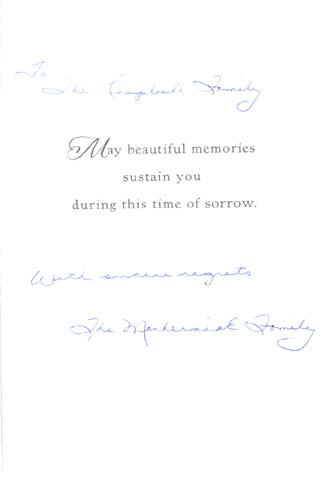 To
The Campbell Family
May beautiful memories
sustain you
during this time of sorrow.
With sincere regrets
The Family